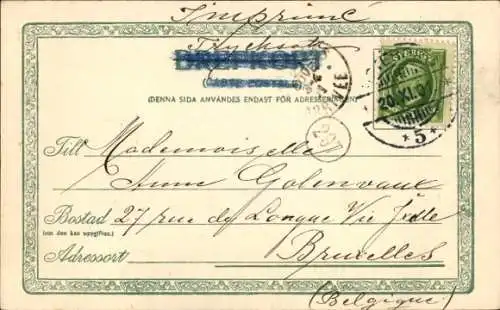 Imprimé
Trycksak
(DENNA SIDA ANVÄNDES ENDAST FÖR ADRESSERINGEN)
SVERIGE
20.XI.0
*5*
237
Till Mademoiselle
Anna Golenvaux
Bostad 27 rue de Longue Vie Ixelle
(om den kan uppgifvas.)
Adressort Bruxelles
(Belgique)